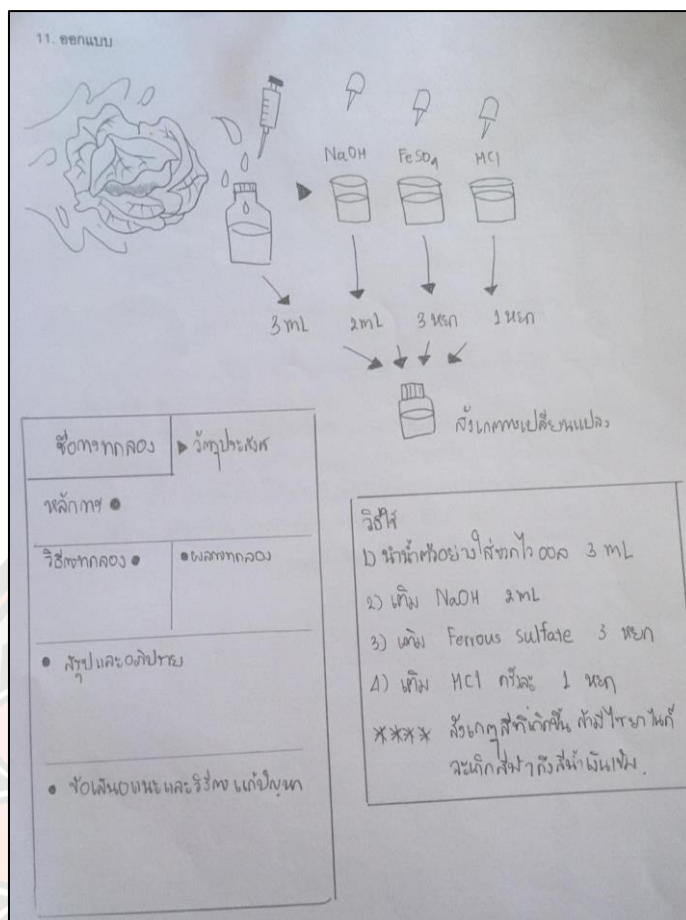 11. ออกแบบ
NaOH FeSO4 HCl
3 mL 2mL 3 หยด 1 หยด
สังเกตการเปลี่ยนแปลง
ชื่อการทดลอง
วัตถุประสงค์
หลักการ
วิธีการทดลอง
ผลการทดลอง
สรุปและอภิปราย
ข้อเสนอแนะและวิธีการแก้ปัญหา
วิธีใช้
1) นำน้ำตัวอย่างใส่ขวดไวออล 3 mL
2) เติม NaOH 2mL
3) เติม Ferrous sulfate 3 หยด
4) เติม HCl ครั้งละ 1 หยด
**** สังเกตุสีที่เกิดขึ้น ถ้ามีไซยาไนด์
จะเกิดสีฟ้าถึงสีน้ำเงินเข้ม.